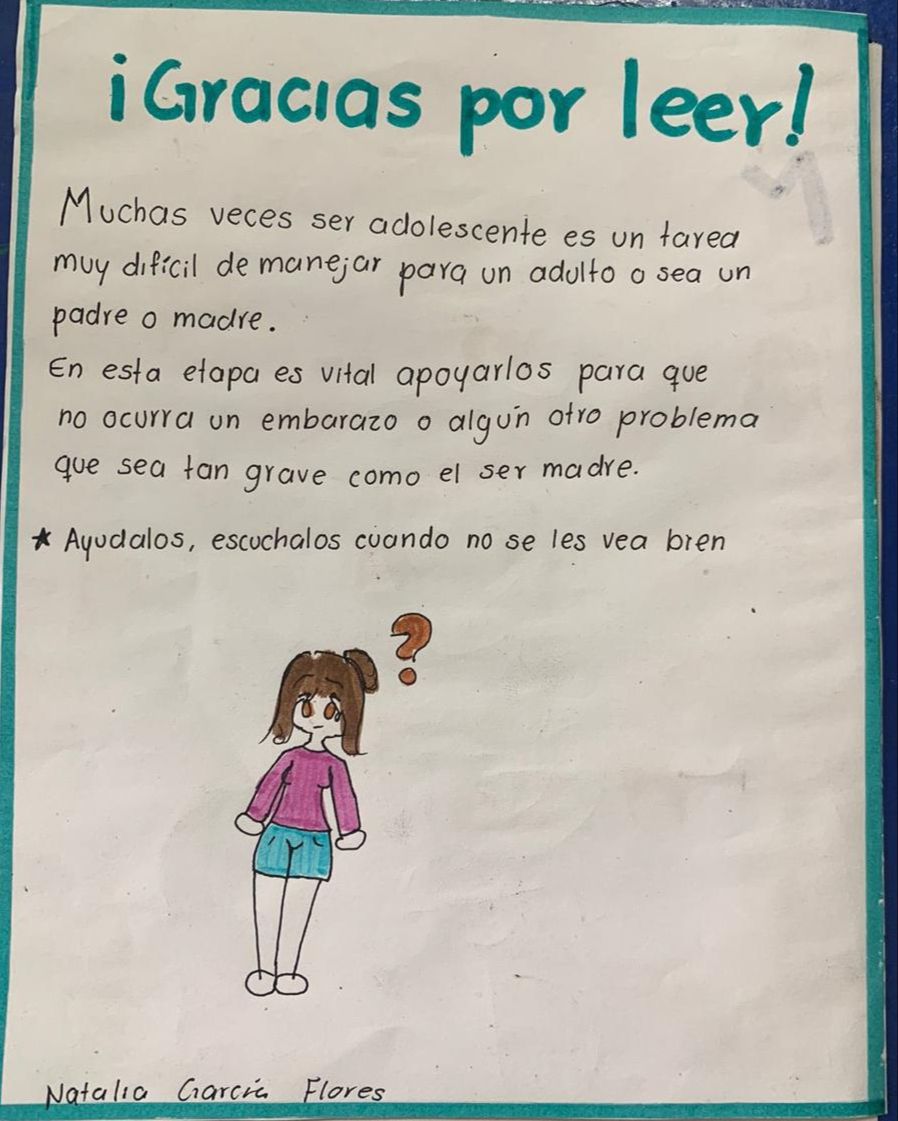 ¡Gracias por leer!
Muchas veces ser adolescente es un tarea
muy difícil de manejar para un adulto o sea un
padre o madre.
En esta etapa es vital apoyarlos para que
no ocurra un embarazo o algún otro problema
que sea tan grave como el ser madre.
* Ayudalos, escuchalos cuando no se les vea bien
?
Natalia García Flores